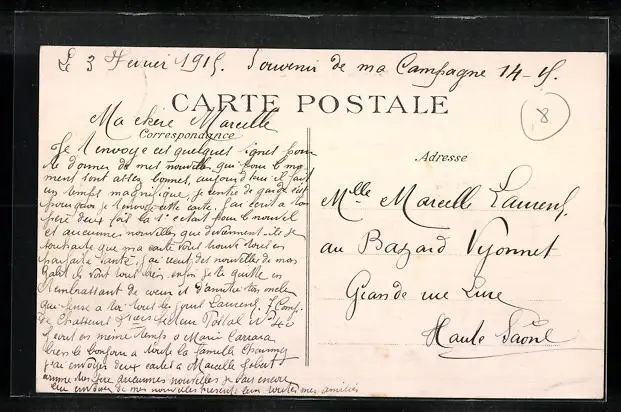 Le 3 Fevrier 1915. Souvenir de ma Campagne 14-15.
CARTE POSTALE
8
Ma chère Marcelle
Correspondance
Adresse
Je t'envoye ces quelques lignes pour
te donner de mes nouvelles qui pour le mo
ment sont assez bonnes, aujourd'hui il fait
un temps magnifique, je rentre de garde
je t'envoye cette carte. J'ai écrit à ton
père deux fois la 1re c'était pour le nouvel
et aucunes nouvelles
que ma carte vous trouve tous en
parfaite santé, j'ai des nouvelles de mon
ils vont tous bien, enfin je te quitte en
t'embrassant de cœur et d'amitié ton oncle
qui pense à toi tous les jours Laurens.
Postal No 40
J'écris en même temps à Marie
bien le bonjour à toute la famille
J'ai envoyé deux cartes à Marcelle
aucunes nouvelles je vais encore
lui envoyer de mes nouvelles mes amitiés
Mlle Marcelle Laurens.
au Bazard Vyonnet
Grande rue Lure
Haute Saône